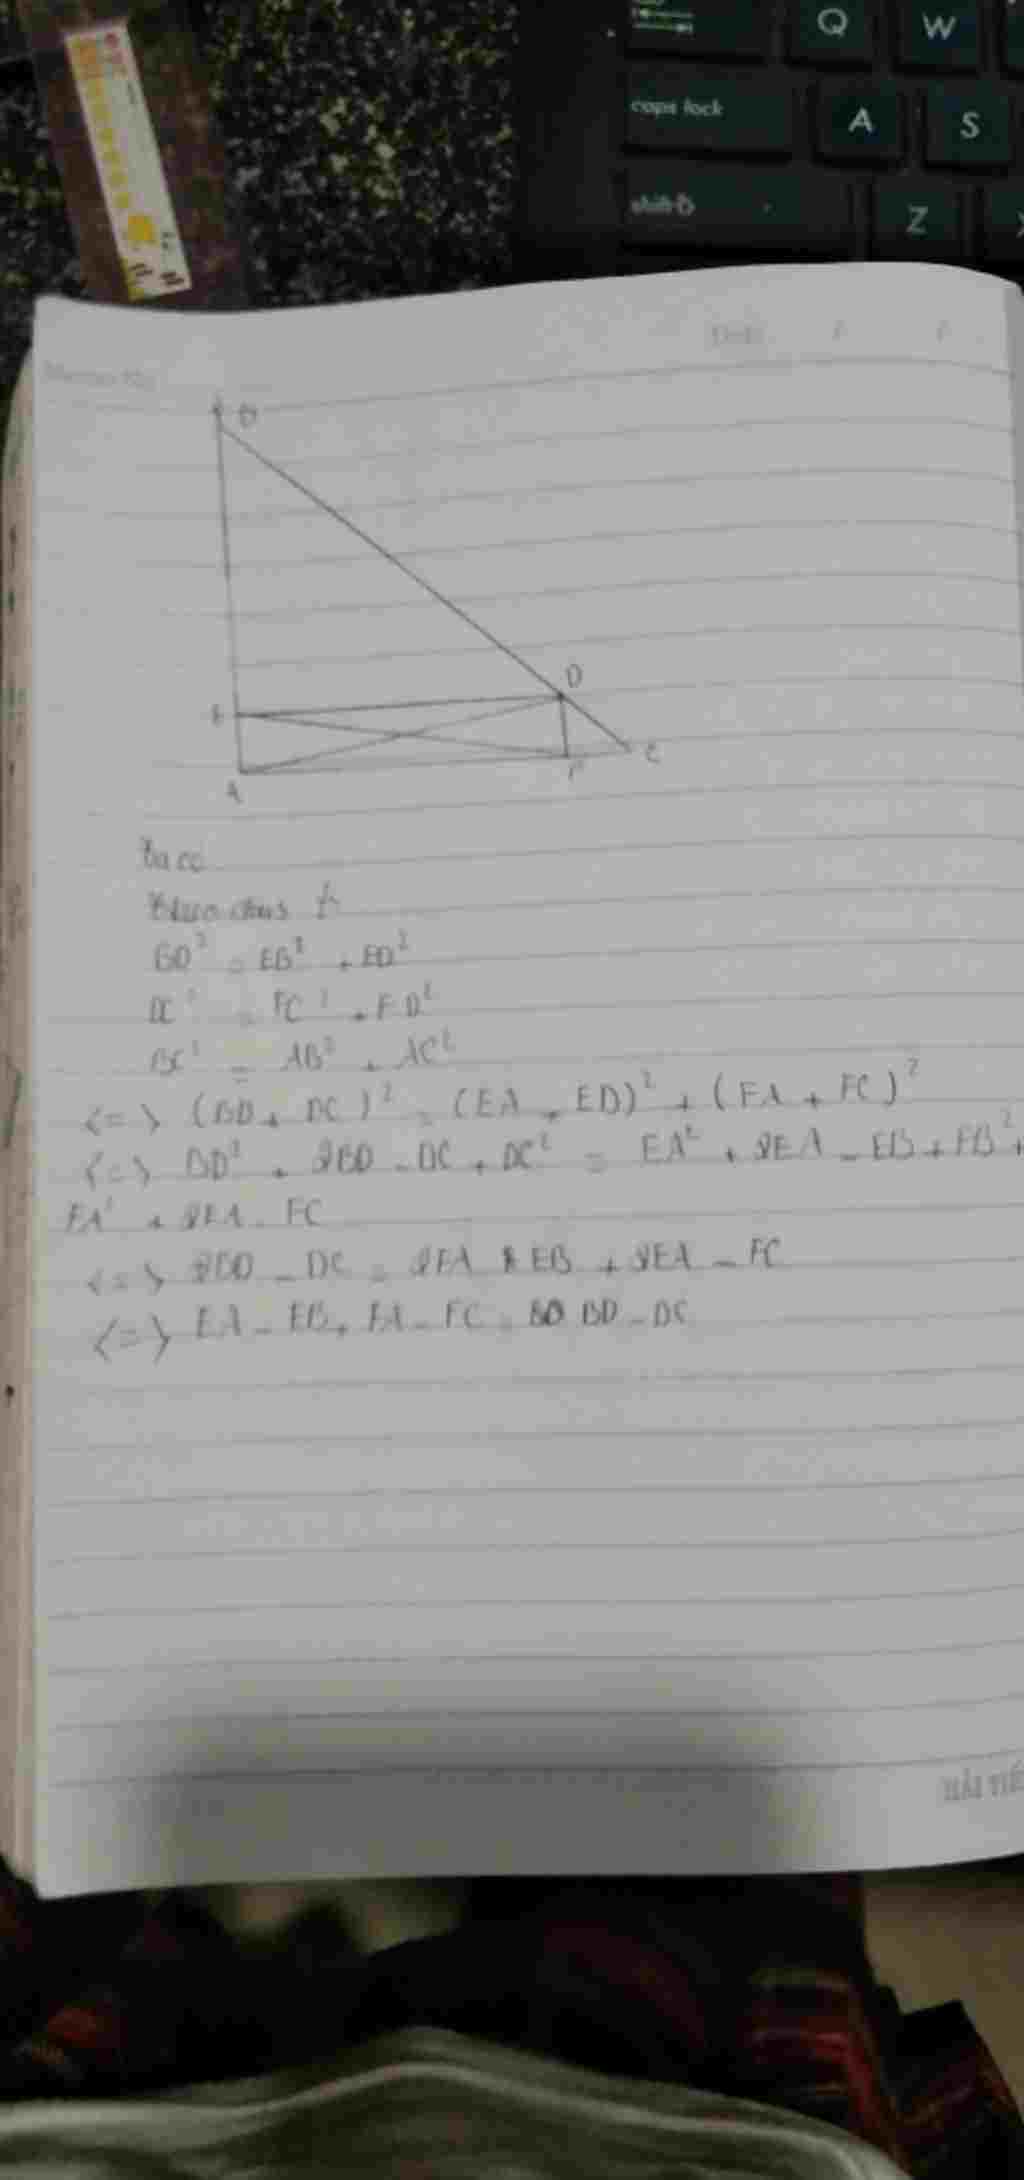 Q W
caps lock A S
shift Z
Date / /
B
D
E
C
F
A
Ta có
BD² = EB² + ED²
DC² = FC² + FD²
BC² = AB² + AC²
<=> (BD + DC)² = (EA + EB)² + (FA + FC)²
<=> BD² + 2BD - DC + DC² = EA² + 2EA - EB + EB² +
FA² + 2FA - FC
<=> 2BD - DC = 2EA EB + 2FA - FC
<=> EA - EB + FA - FC = BD - DC
HẢI TIẾ